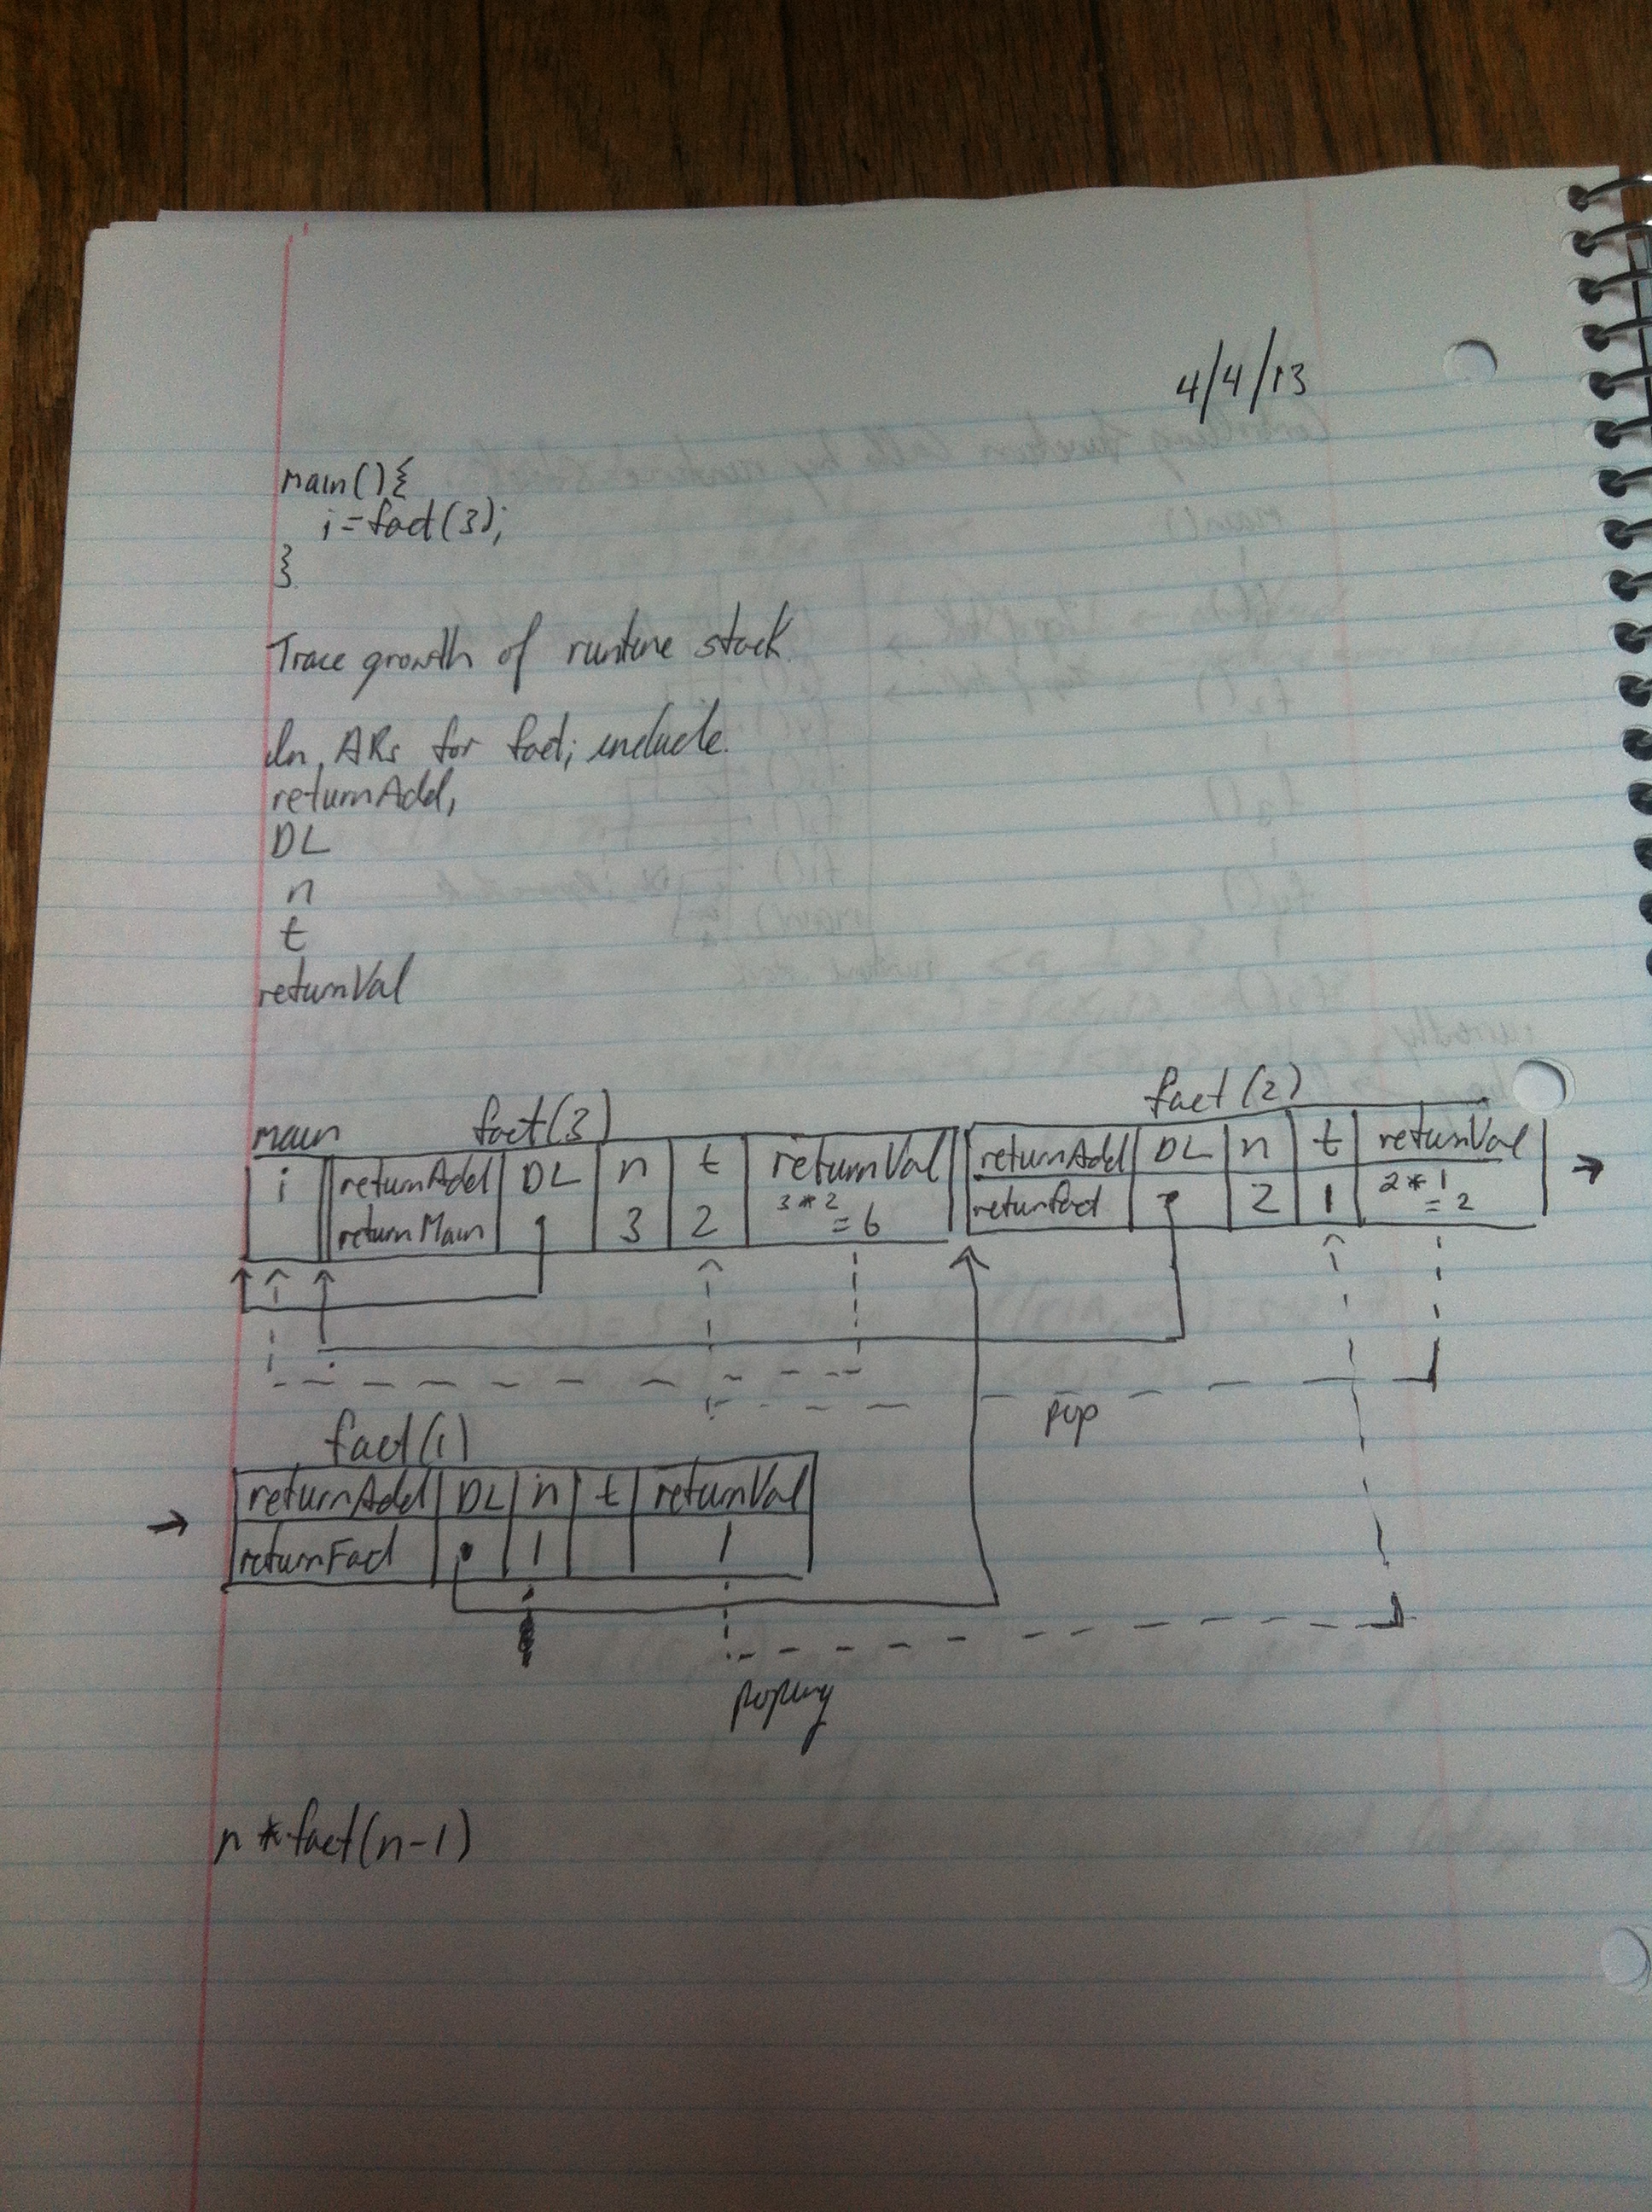 4/4/13
main(){
i=fact(3);
}
Trace growth of runtime stack.
In ARs for fact, include.
returnAdd,
DL
n
t
returnVal
main fact(3) fact(2)
i returnAdd DL n t returnVal returnAdd DL n t returnVal →
returnMain 3 2 3*2 =6 returnFact 2 1 2*1 =2
pop
fact(1)
→ returnAdd DL n t returnVal
returnFact 1 1
poping
n*fact(n-1)